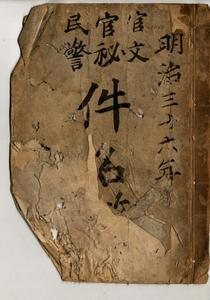 明治三十六年
官文
官秘
民警
件名